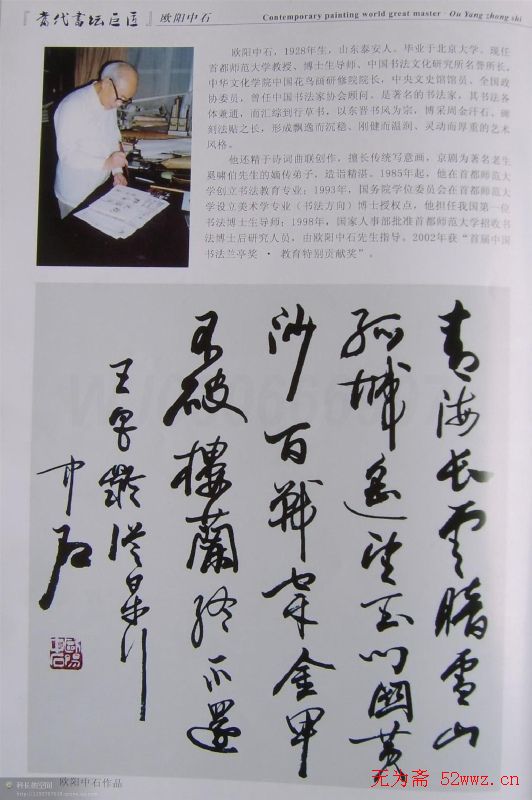 『当代书坛巨匠』欧阳中石
Contemporary painting world great master · Ou Yang zhong shi
欧阳中石，1928年生，山东泰安人。毕业于北京大学。现任
首都师范大学教授、博士生导师、中国书法文化研究所名誉所长，
中华文化学院中国花鸟画研修院院长，中央文史馆馆员、全国政
协委员，曾任中国书法家协会顾问。是著名的书法家，其书法各
体兼通，而汇综到行草书，以东晋书风为宗，博采周金汗石、碑
刻法贴之长，形成飘逸而沉稳、刚健而温润、灵动而厚重的艺术
风格。
他还精于诗词曲联创作，擅长传统写意画，京剧为著名老生
奚啸伯先生的嫡传弟子，造诣精湛。1985年起，他在首都师范大
学创立书法教育专业；1993年，国务院学位委员会在首都师范大
学设立美术学专业（书法方向）博士授权点，他担任我国第一位
书法博士生导师；1998年，国家人事部批准首都师范大学招收书
法博士后研究人员，由欧阳中石先生指导。2002年获“首届中国
书法兰亭奖 · 教育特别贡献奖”。
青海长雲暗雪山
孤城遥望玉门關黄
沙百戰穿金甲
不破樓蘭終不還
王昌齡從軍行
中石
歐陽中石
欧阳中石作品
科长的空间
无为斋 52wwz.cn